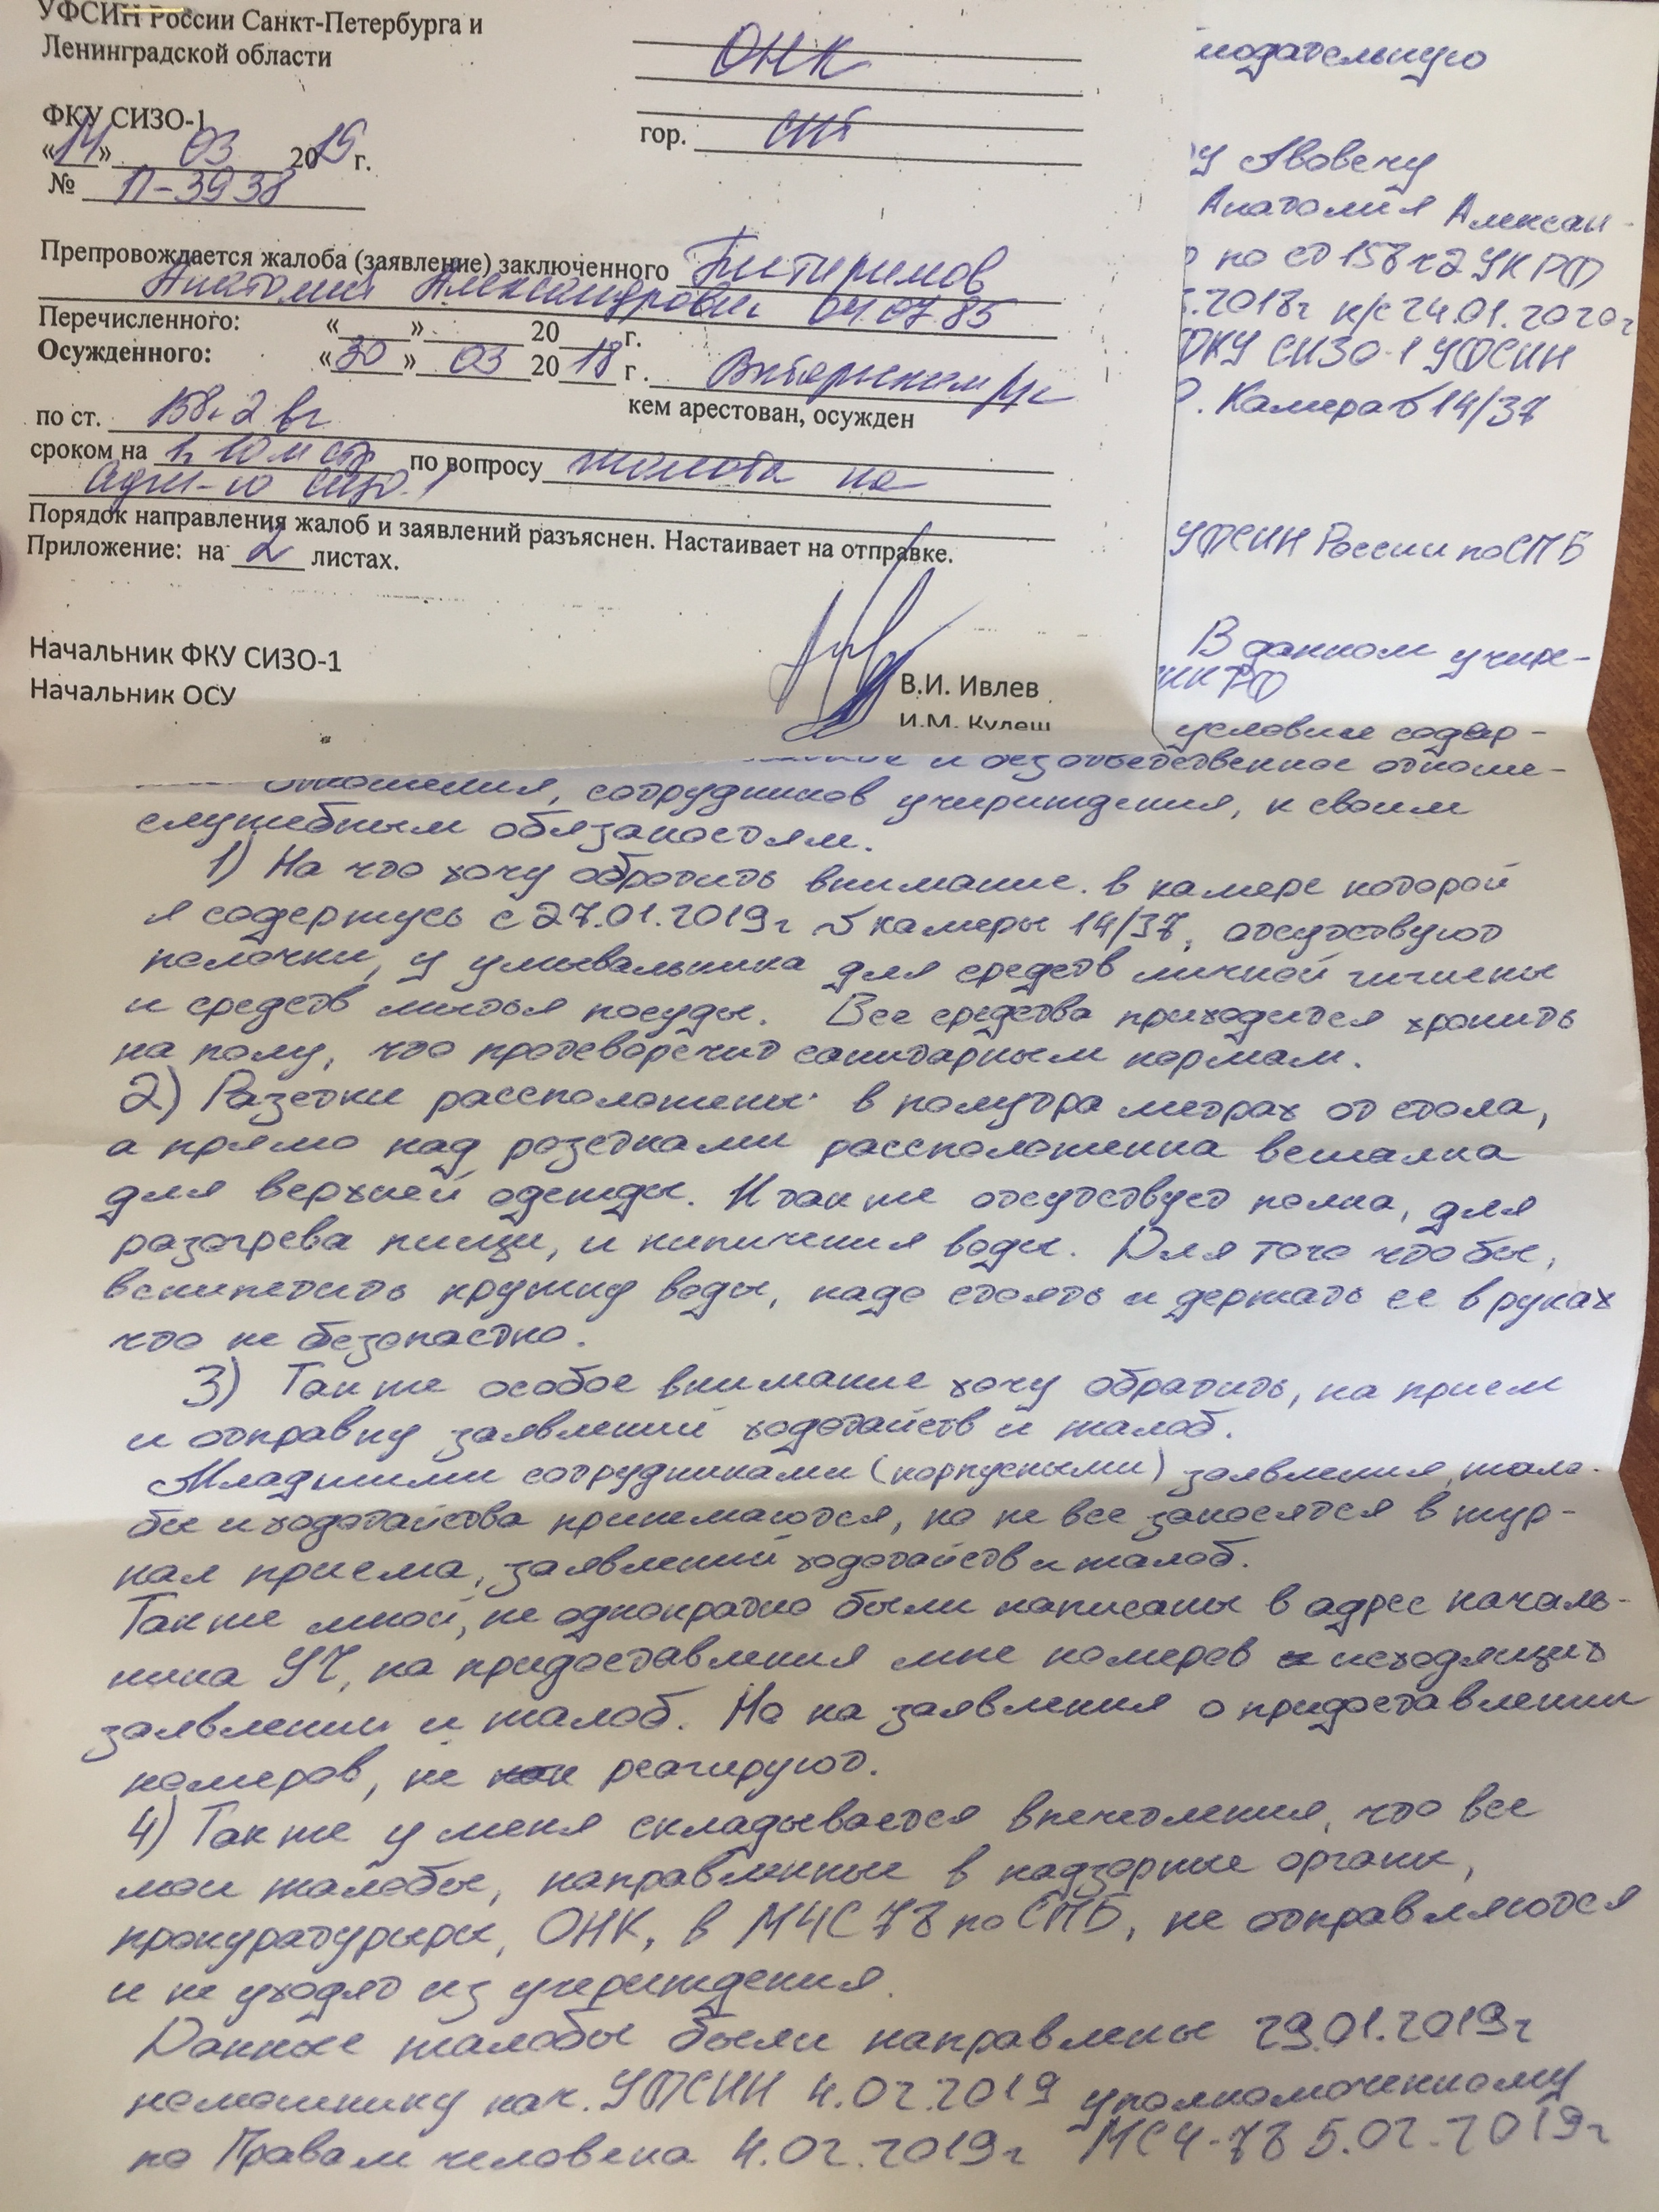 УФСИН России Санкт-Петербурга и
Ленинградской области
ОНК
ФКУ СИЗО-1
«14» 03 2019 г.
гор. СПб
№ П-3938
Препровождается жалоба (заявление) заключенного Питиримов
Анатолий Александрович 04.07.85
Перечисленного: « » 20 г.
Осужденного: «30» 03 2018 г.
кем арестован, осужден
по ст. 158 ч. 2
сроком на по вопросу жалоба на
адм-ю СИЗО-1
Порядок направления жалоб и заявлений разъяснен. Настаивает на отправке.
Приложение: на 2 листах.
Начальник ФКУ СИЗО-1
Начальник ОСУ
В.И. Ивлев
И.М. Кулеш
Анатолия Алексан-
по ст 158 ч 2 УК РФ
.2018г к/с 24.01.2020г
ФКУ СИЗО-1 УФСИН
. Камера № 14/37
УФСИН России по СПБ
В данном учире-
условие содер-
и безответственное отноше-
отношения, сотрудников учириждения, к своим
служебным обязаностям.
1) На что хочу обротить внимание. в камере которой
я содержусь с 27.01.2019г № камеры 14/37, отсутствуют
полочки, у умывальника для средств личной гигиены
и средств мытья посуды. Все средства приходится хронить
на полу, что протеворечит санитарным нормам.
2) Разетки рассположены в полутора метрах от стола,
а прямо над розетками рассположенна вешалка
для верхней одежды. И так же отсутствует полка, для
разогрева пищи, и кипичения воды. Для того что бы,
вскипетить кружку воды, надо стоять и держать ее в руках
что не безопастно.
3) Так же особое внимание хочу обратить, на прием
и отправку заявлений ходотайств и жалоб.
Младшими сотрудниками (корпусными) заявления, жало-
бы и ходотайства принемаются, но не все заносятся в жур-
нал приема, заявлений ходотайств и жалоб.
Так же мной, не однократно были написаны в адрес началь-
ника УЧ, на придоставления мне номеров исходящих
заявлении и жалоб. Но на заявления о придоставлении
номеров, не реагируют.
4) Так же у меня складывается впечетления, что все
мои жалобы, направленные в надзорные органы,
прокуратуры, ОНК, в МЧС 78 по СПБ, не отправляются
и не уходят из учериждения.
Данные жалобы были направлены 29.01.2019г
помошнику нач. УФСИН 4.02.2019 уполномоченному
по Правам человека 4.02.2019г МСЧ-78 5.02.2019г